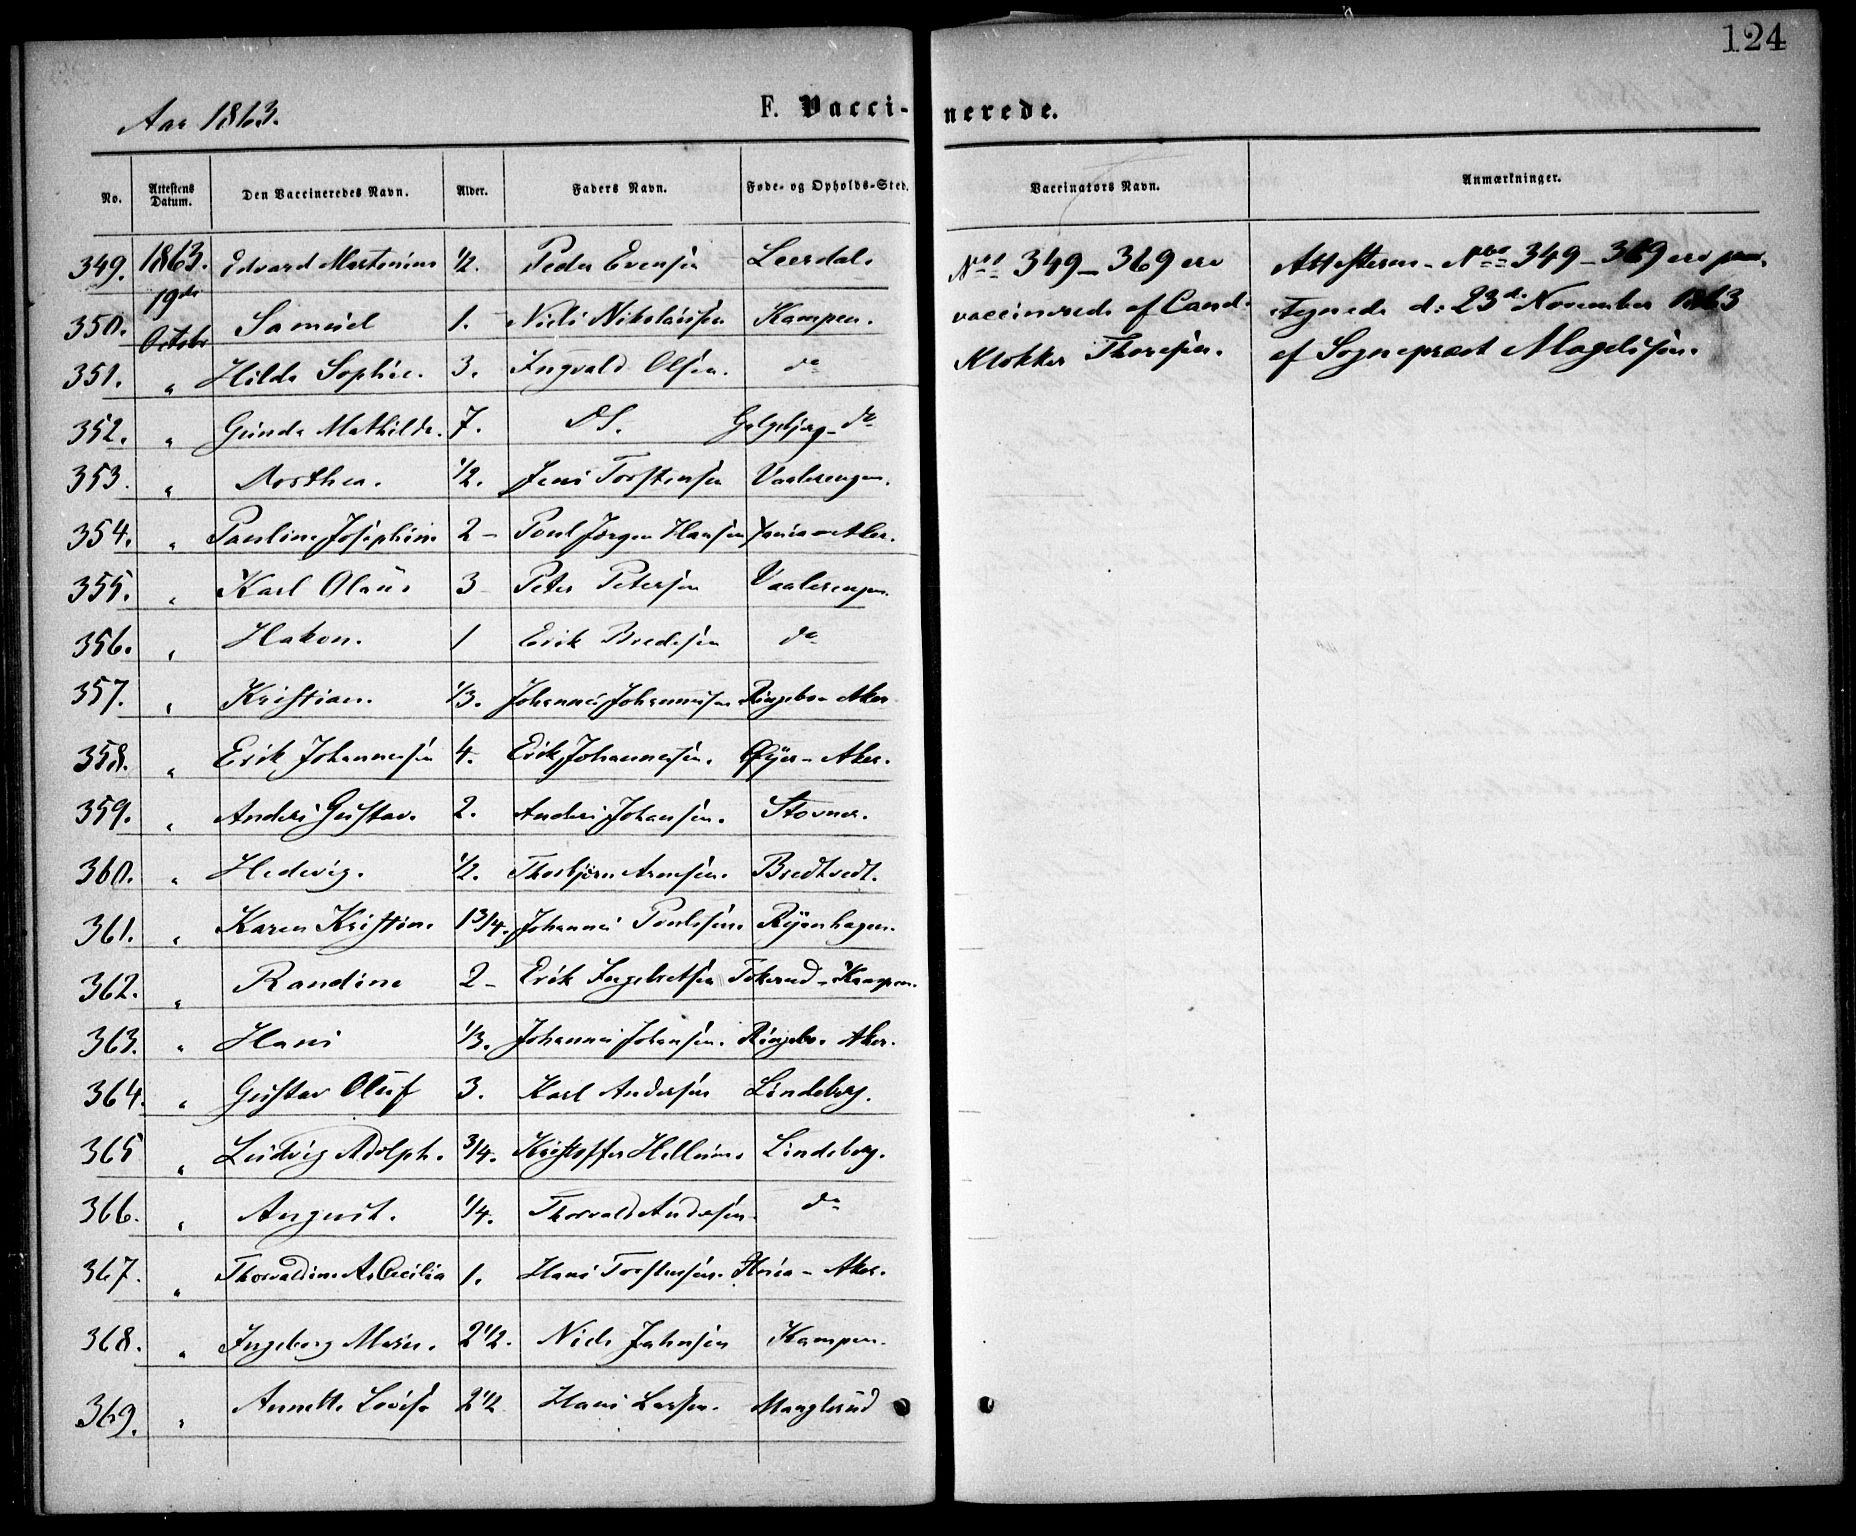 124
Aar 1863.
F. Vacci-nerede.
No. Attestens Datum. Den Vaccineredes Navn. Alder. Faders Navn. Føde- og Opholds-Sted. Vaccinators Navn. Anmærkninger.
349. 1863. Edvard Martinius ½. Peder Evensen Leerdal. No 349-369 ere Attesterne No 349-369 ere paa-
350. 19de Octobr Samuel 1. Niels Nikolaisen Kampen. vaccinerede af Cand. tegnede d: 23d. November 1863
351. " Hilda Sophie. 3. Ingvald Olsen. do Klokker Thoresen. af Sognepræst Magelssen.
352. " Gunda Mathilde. 7. DS. Galgebjerg - do
353. " Dorthea. ½. Jens Torstensen Vaalerengen.
354. " Pauline Josephine 2 - Poul Jørgen Hansen Xania - Aker.
355. " Karl Olaus 3 Peter Petersen Vaalerengen.
356. " Hakon. 1 Erik Bredesen do
357. " Kristian. 1/3. Johannes Johannesen Ringebo - Aker
358. " Erik Johannesen 4. Erik Johannesen. Øyer - Aker.
359. " Anders Gustav. 2. Anders Johansen. Stovner.
360. " Hedevig. ½. Thorbjørn Arnesen. Bredtvedt.
361. " Karen Kristine. 1 3/4. Johannes Poulsen. Ryenhagen.
362. " Randine 2 - Erik Ingebretsen Tokerud - Kampen.
363. " Hans 1/3. Johannes Johansen. Ringebo - Aker.
364. " Gustav Oluf 3. Karl Andersen Lindeberg.
365 " Ludvig Adolph. 3/4. Kristoffer Hellum. Lindeberg.
366. " August. 1/4. Thorvald Andersen. do
367. " Thorvaldine A. Cecilia 1. Hans Torstensen. Xania - Aker.
368. " Ingeborg Marie. 2 ½. Niels Jahnsen Kampen.
369. " Annette Lovise 2 ½ Hans Larsen. Manglerud